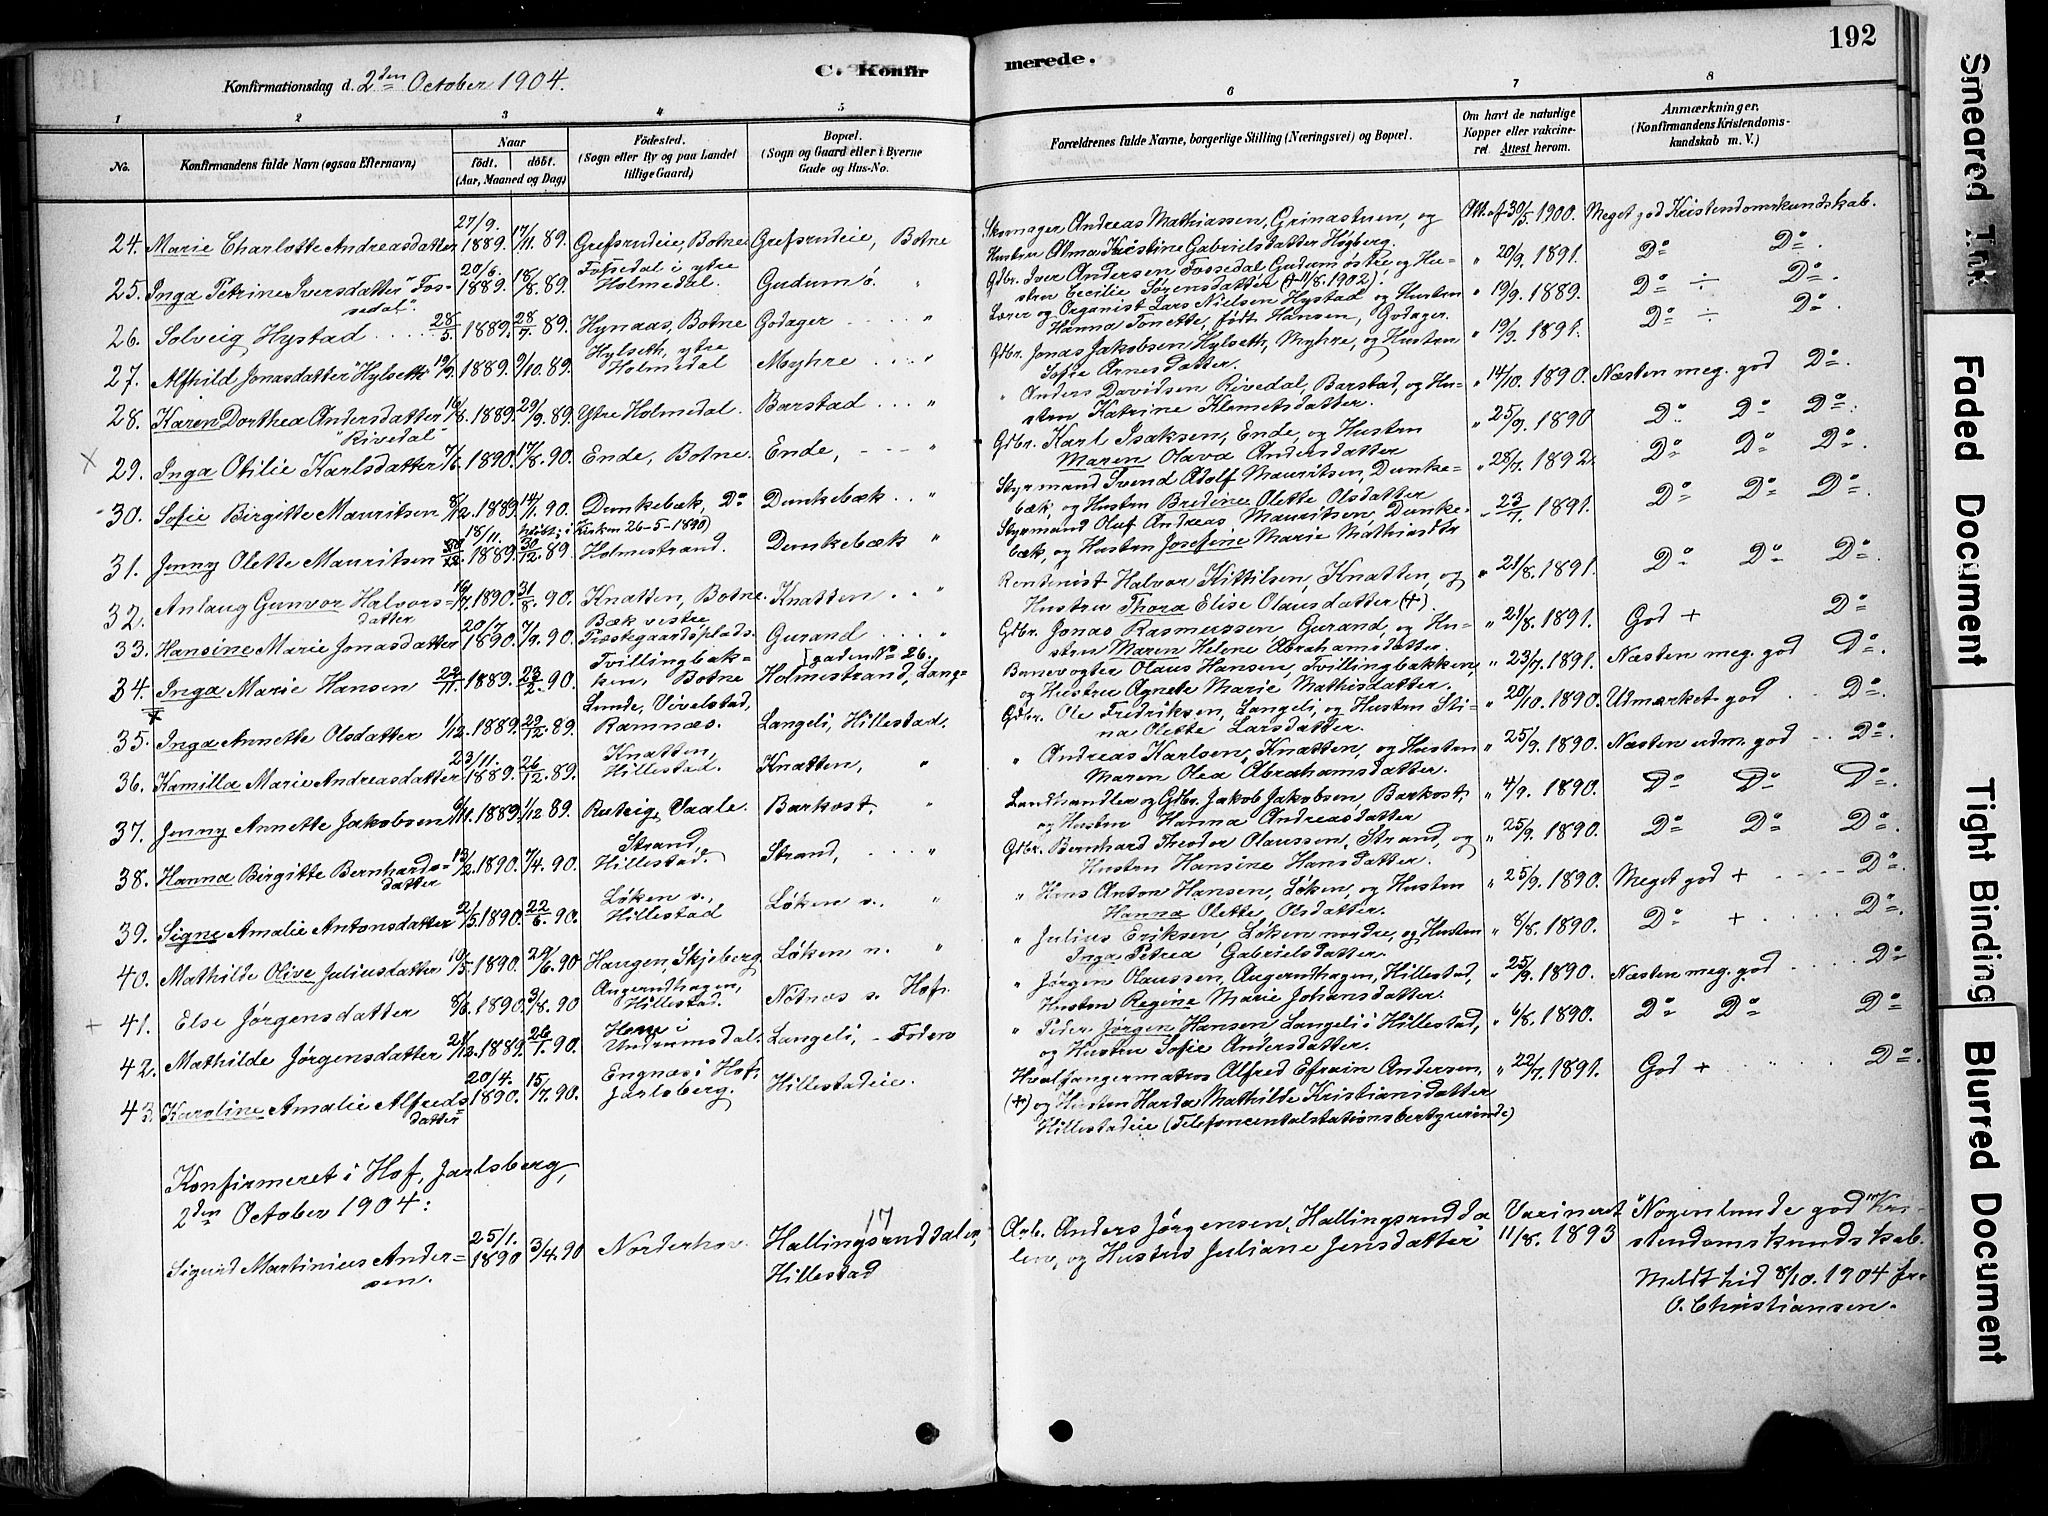 192
C. Konfir
merede.
Konfirmationsdag d. 2den October 1904.
1 2 3 4 5 6 7 8
No.
Konfirmandens fulde Navn (ogsaa Efternavn)
Naar
födt.
döbt.
(Aar, Maaned og Dag)
Födested.
(Sogn eller By og paa Landet
tillige Gaard)
Bopæl.
(Sogn og Gaard eller i Byerne
Gade og Hus-No.
Forældrenes fulde Navne, borgerlige Stilling (Næringsvei) og Bopæl.
Om havt de naturlige
Kopper eller vakcine-
ret. Attest herom.
Anmærkninger.
(Konfirmandens Kristendoms-
kundskab m. V.)
24. Marie Charlotte Andreasdatter 27/9. 1889. 17/11. 89. Grefsrudeie, Botne Grefsrudeie, Botne
Skomager Andreas Mathiassen, Grinastuen, og
Hustru Alma Kristine Gabrielsdatter Høgberg.
Att. af 30/5. 1900. Meget god Kristendomskundskab.
25. Inga Petrine Iversdatter "Fos-
sedal". 20/6. 1889. 18/8. 89. Fossedal i ytre
Holmedal. Gudum ö. "
Gdbr. Iver Andersen Fossedal Gudum østre og Hu-
stru Cecilie Sørensdatter (+ 11/8. 1902).
" 20/9. 1891. Do Do
26. Solveig Hystad 28/5. 1889. 28/7. 89. Hynaas, Botne Godager "
Lærer og Organist Lars Nielsen Hystad og Hustru
Hanna Tonette, født Hansen, Godager.
" 19/9. 1889. Do ÷ Do
27. Alfhild Jonasdatter "Hylseth" 19/9. 1889. 9/10. 89. Hylseth, ytre
Holmedal Myhre "
Gdbr. Jonas Jakobsen Hylseth, Myhre, og Hustru
Sofie Arnesdatter.
" 19/9. 1891. Do ÷ Do
28. Karen Dorthea Andersdatter
"Rivedal" 16/8. 1889. 29/9. 89. Ytre Holmedal. Barstad "
" Anders Davidsen Rivedal, Barstad, og Hu-
stru Katrine Klemetsdatter.
" 14/10. 1890. Næsten meg. god Do
29. Inga Otilie Karlsdatter 7/6. 1890. 17/8. 90. Ende, Botne. Ende, "
Gdbr. Karl Isaksen, Ende, og Hustru
Maren Olava Andersdatter
" 25/9. 1890 Do Do Do
30. Sofie Birgitte Mauritsen 8/12. 1889. 14/1. 90. Dunkebæk, Do Dunkebæk "
Styrmand Svend Adolf Mauritsen, Dunke-
bæk, og Hustru Bredine Olette Olsdatter
" 28/7. 1892. Do Do Do
31. Jenny Olette Mauritsen 18/11. 1889. 30/12. 89. Kirken 26-5-1890)
Holmestrand. Dunkebæk "
Styrmand Oluf Andreas Mauritsen, Dunke-
bæk, og Hustru Josefine Marie Mathiasdtr
" 23/7. 1891. Do Do Do
32. Anlaug Gunvor Halvors-
datter 1890. 31/8. 90. Knatten, Botne. Knatten "
Rentenist Halvor Kittilsen, Knatten, og
Hustru Thora Elise Olausdatter (+).
" 21/8. 1891. Do Do Do
33. Hansine Marie Jonasdatter 20/7. 1890. 7/9. 90. Bæk vestre,
Præstegaardsplads. Gurand "
Gdbr. Jonas Rasmussen Gurand, og Hu-
stru Maren Helene Abrahamsdatter
" 21/8. 1891. God + Do
34. Inga Marie Hansen 22/11. 1889. 23/2. 90. Tvillingbak-
ken, Botne Holmestrand, Lang-
gaden No 26.
Banevogter Olaus Hansen, Tvillingbakken,
og Hustru Agnete Marie Mathisdatter.
" 23/7. 1891. Næsten meg. god Do
35. Inga Annette Olsdatter 1/12. 1889. 29/12. 89. Lunde, Vivelstad,
Ramnæs. Langeli, Hillestad.
Gdbr. Ole Fredriksen, Langeli, og Hustru Sti-
na Olette Larsdatter.
" 20/10. 1890. Udmærket god Do
36. Kamilla Marie Andreasdatter 23/11. 1889. 26/12. 89. Knatten,
Hillestad. Knatten, "
" Andreas Karlsen, Knatten, og Hustru
Maren Olea Abrahamsdatter.
" 25/9. 1890. Næsten udm. god Do
37. Jenny Annette Jakobsen 6/11. 1889. 1/12 89. Rutvig, Vaale. Barkost, "
Landhandler og Gdbr. Jakob Jakobsen, Barkost,
og Hustru Hanna Andreasdatter
" 4/9. 1890. Do Do Do
38. Hanna Birgitte Bernhards-
datter 13/2. 1890. 7/4. 90. Strand,
Hillestad. Strand, "
Gdbr. Bernhard Theodor Olaussen, Strand, og
Hustru Hansine Hansdatter.
" 25/9. 1890. Do Do Do
39. Signe Amalie Antonsdatter 2/5. 1890. 22/6. 90. Løken s.,
Hillestad Løken s., "
" Hans Anton Hansen, Løken, og Hustru
Hanna Olette Olsdatter.
" 25/9. 1890. Meget god + Do
40. Mathilde Olive Juliusdatter 10/5. 1890. 29/6. 90 Haugen, Skjeberg. Løken n. "
" Julius Eriksen, Løken nordre, og Hustru
Inga Petrea Gabrielsdatter.
" 8/8. 1890. Do + Do
41. Else Jørgensdatter 8/6. 1890. 3/8. 90 Angerudhagen,
Hillestad. Nötnæs s. Hof.
" Jørgen Olaussen, Augerudhagen, Hillestad,
Hustru Regine Marie Johansdatter.
" 25/9. 1890. Næsten meg. god Do
42. Mathilde Jørgensdatter 21/12. 1889. 26/1. 90. i
Undrumsdal. Langeli, - Foden
" Peder Jørgen Hansen, Langeli i Hillestad,
og Hustru Sofie Andersdatter.
" 6/8. 1890. Do Do Do
43. Karoline Amalie Alfreds-
datter 20/4. 1890. 15/7. 90. Engnæs i Hof,
Jarlsberg. Hillestadeie.
Hvalfangermatros Alfred Efraim Andersen,
(+) og Hustru Harda Mathilde Kristiansdatter
Hillestadeie (Telefoncentralstationsbestyrerinde)
" 22/7. 1891. God + Do
Konfirmeret i Hof, Jarlsberg,
2den October 1904:
Sigurd Martinius Ander-
sen. 25/1. 1890 3/4. 90 Norderhov. 17
Hallingsruddalen,
Hillestad
Arb. Anders Jørgensen, Hallingsrudda
len, og Hustru Juliane Jensdatter
Vaxineret
11/8. 1893
"Nogenlunde god" Kri-
stendomskundskab.
Meldt hid 8/10. 1904 fr.
O. Christiansen.
Smeared Ink
Faded Document
Tight Binding
Blurred Document